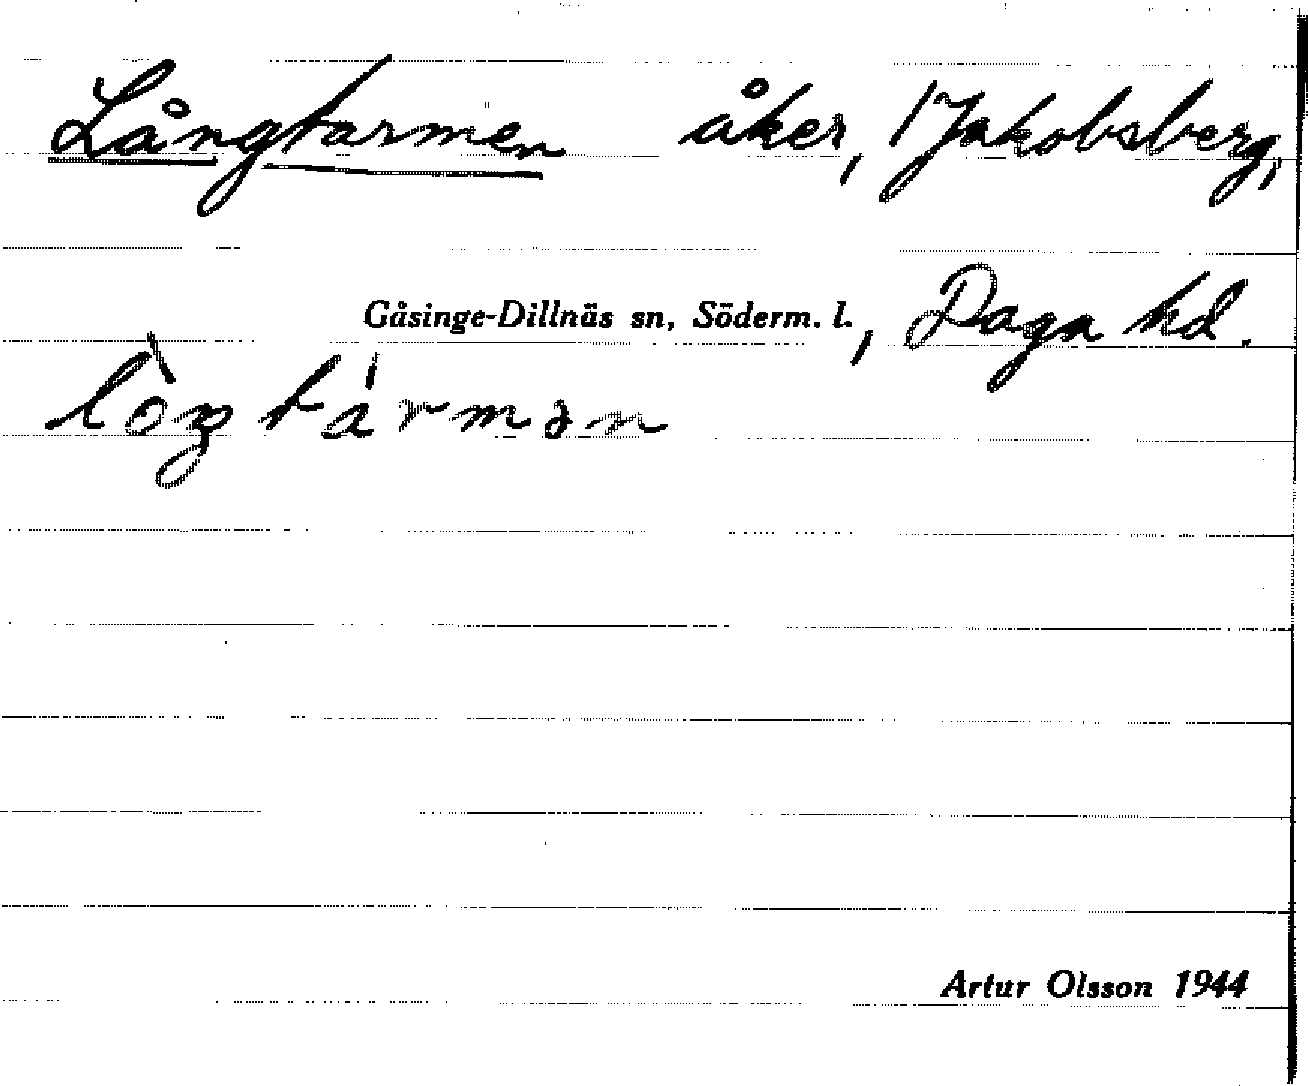 Långtarmen åker, Jakobsberg,
Gåsinge-Dillnäs sn, Söderm. l., Daga hd.
lòŋtármən
Artur Olsson 1944